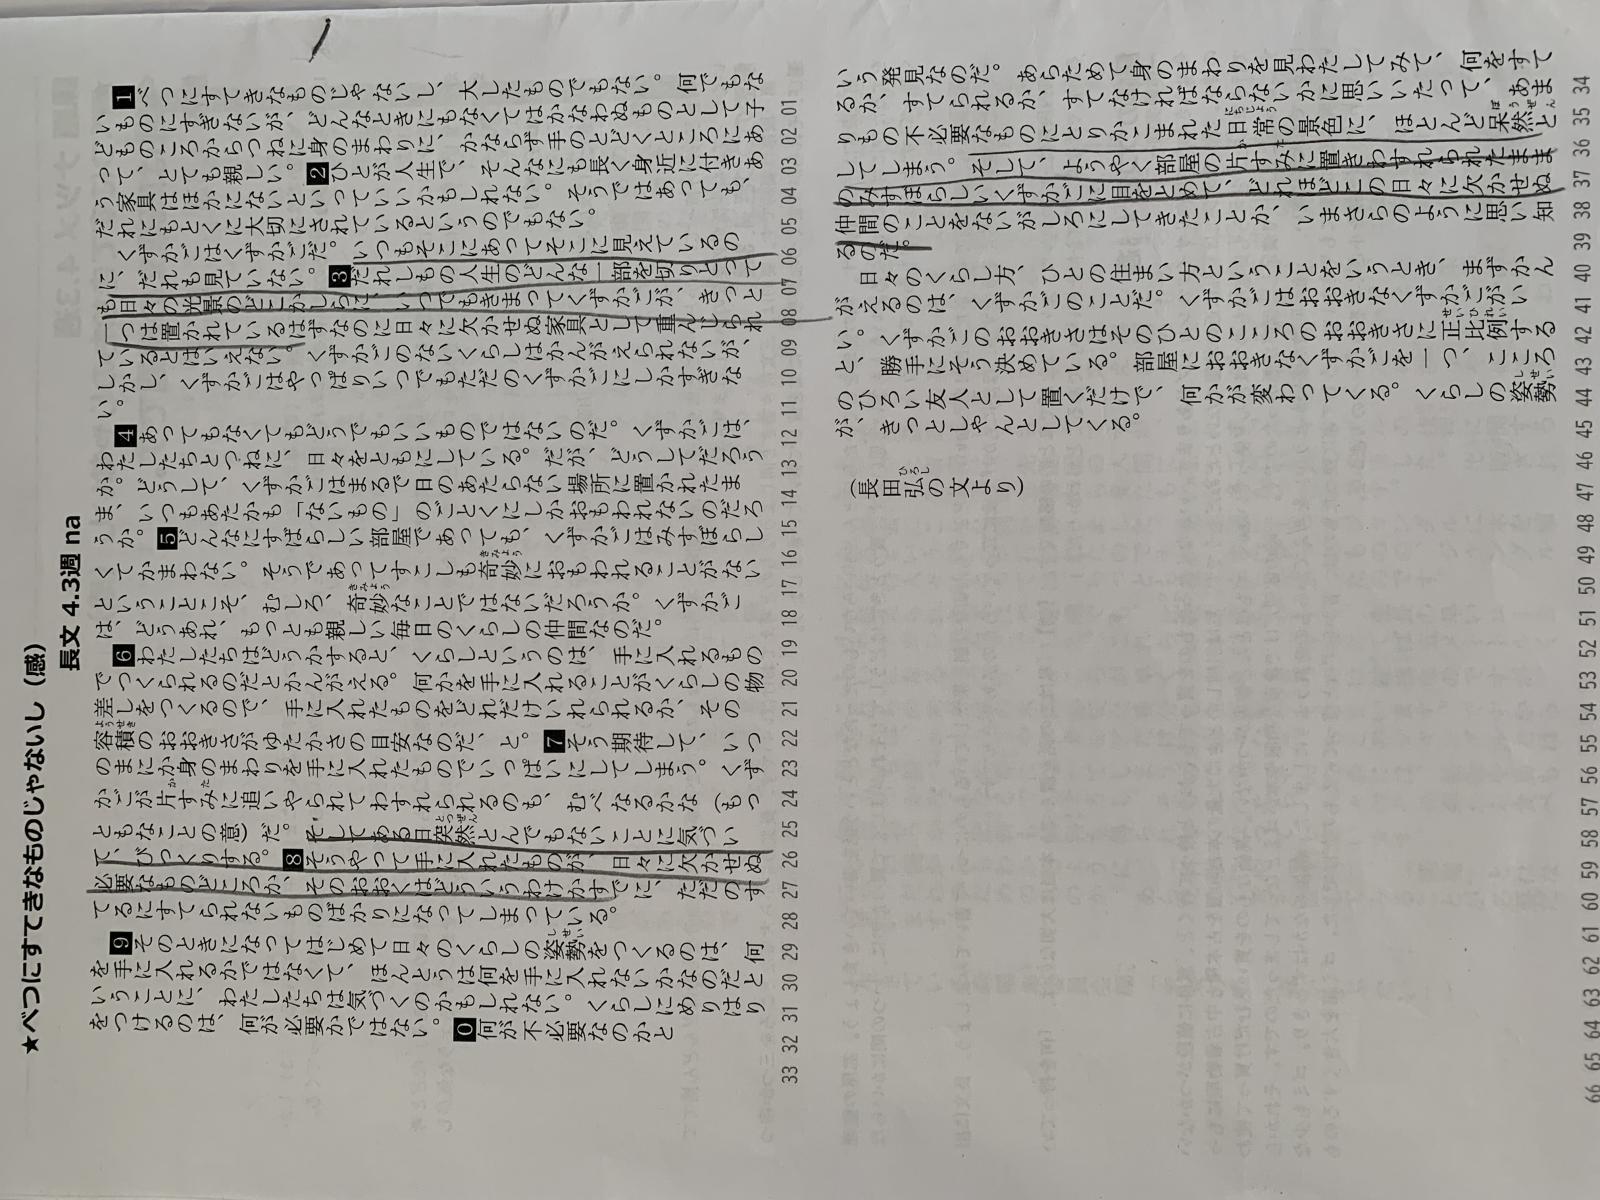 ★べつにすてきなものじゃないし（感）
長文 4.3週 na
1べつにすてきなものじゃないし、大したものでもない。何でもな
いものにすぎないが、どんなときにもなくてはかなわぬものとして子
どものころからつねに身のまわりに、かならず手のとどくところにあ
って、とても親しい。2ひとが人生で、そんなにも長く身近に付きあ
う家具はほかにないといっていいかもしれない。そうではあっても、
だれにもとくに大切にされているというのでもない。
くずかごはくずかごだ。いつもそこにあってそこに見えているの
に、だれも見ていない。3だれしもの人生のどんな一部を切りとって
も日々の光景のどこかしらに、いつでもきまってくずかごが、きっと
一つは置かれているはずなのに日々に欠かせぬ家具として重んじられ
ているとはいえない。くずかごのないくらしはかんがえられないが、
しかし、くずかごはやっぱりいつでもただのくずかごにしかすぎな
い。
4あってもなくてもどうでもいいものではないのだ。くずかごは、
わたしたちとつねに、日々をともにしている。だが、どうしてだろう
か。どうして、くずかごはまるで日のあたらない場所に置かれたま
ま、いつもあたかも「ないもの」のごとくにしかおもわれないのだろ
うか。5どんなにすばらしい部屋であっても、くずかごはみすぼらし
くてかまわない。そうであってすこしも奇妙におもわれることがない
ということこそ、むしろ、奇妙なことではないだろうか。くずかご
は、どうあれ、もっとも親しい毎日のくらしの仲間なのだ。
6わたしたちはどうかすると、くらしというのは、手に入れるもの
でつくられるのだとかんがえる。何かを手に入れることがくらしの物
差しをつくるので、手に入れたものをどれだけいれられるか、その
容積のおおきさがゆたかさの目安なのだ、と。7そう期待して、いつ
のまにか身のまわりを手に入れたものでいっぱいにしてしまう。くず
かごが片すみに追いやられてわすれられるのも、むべなるかな（もっ
ともなことの意）だ。そしてある日突然とんでもないことに気づい
て、びっくりする。8そうやって手に入れたものが、日々に欠かせぬ
必要なものどころか、そのおおくはどういうわけかすでに、ただのす
てるにすてられないものばかりになってしまっている。
9そのときになってはじめて日々のくらしの姿勢をつくるのは、何
を手に入れるかではなくて、ほんとうは何を手に入れないかなのだと
いうことに、わたしたちは気づくのかもしれない。くらしにめりはり
をつけるのは、何が必要かではない。0何が不必要なのかと
01 02 03 04 05 06 07 08 09 10 11 12 13 14 15 16 17 18 19 20 21 22 23 24 25 26 27 28 29 30 31 32 33
いう発見なのだ。あらためて身のまわりを見わたしてみて、何をすて
るか、すてられるか、すてなければならないかに思いいたって、あま
りもの不必要なものにとりかこまれた日常の景色に、ほとんど呆然と
してしまう。そして、ようやく部屋の片すみに置きわすれられたまま
のみすぼらしいくずかごに目をとめて、どれほどこの日々に欠かせぬ
仲間のことをないがしろにしてきたことか、いまさらのように思い知
るのだ。
日々のくらし方、ひとの住まい方ということをいうとき、まずかん
がえるのは、くずかごのことだ。くずかごはおおきなくずかごがい
い。くずかごのおおきさはそのひとのこころのおおきさに正比例する
と、勝手にそう決めている。部屋におおきなくずかごを一つ、こころ
のひろい友人として置くだけで、何かが変わってくる。くらしの姿勢
が、きっとしゃんとしてくる。
（長田弘の文より）
34 35 36 37 38 39 40 41 42 43 44 45 46 47 48 49 50 51 52 53 54 55 56 57 58 59 60 61 62 63 64 65 66